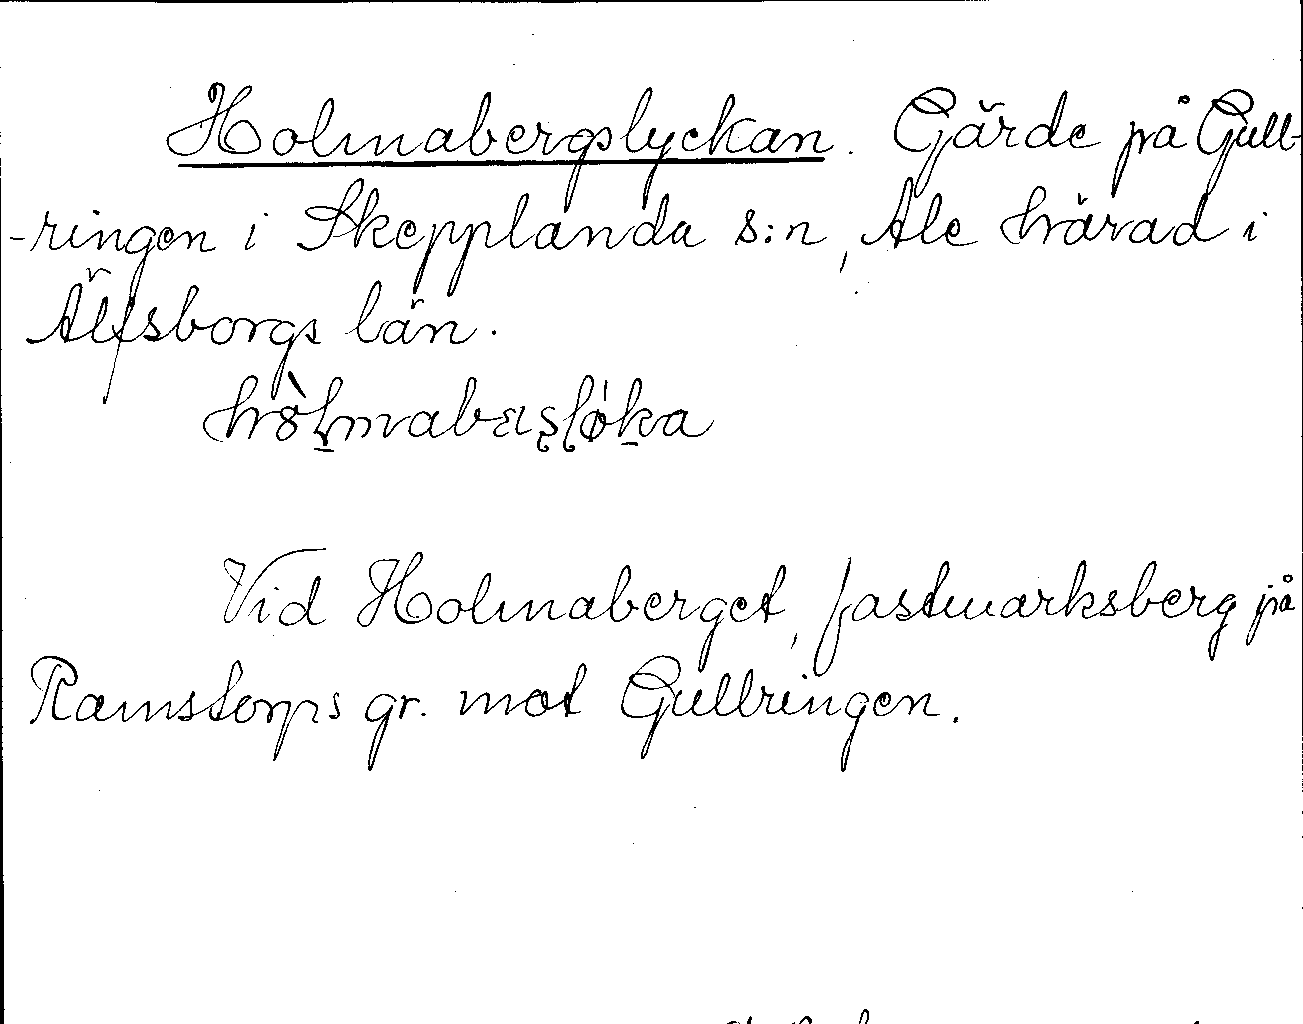 Holmabergslyckan. Gärde på Gull-
-ringen i Skepplanda s:n, Ale härad i
Älfsborgs län.
Vid Holmaberget, fastmarksberg på
Ramstorps gr. mot Gullringen.